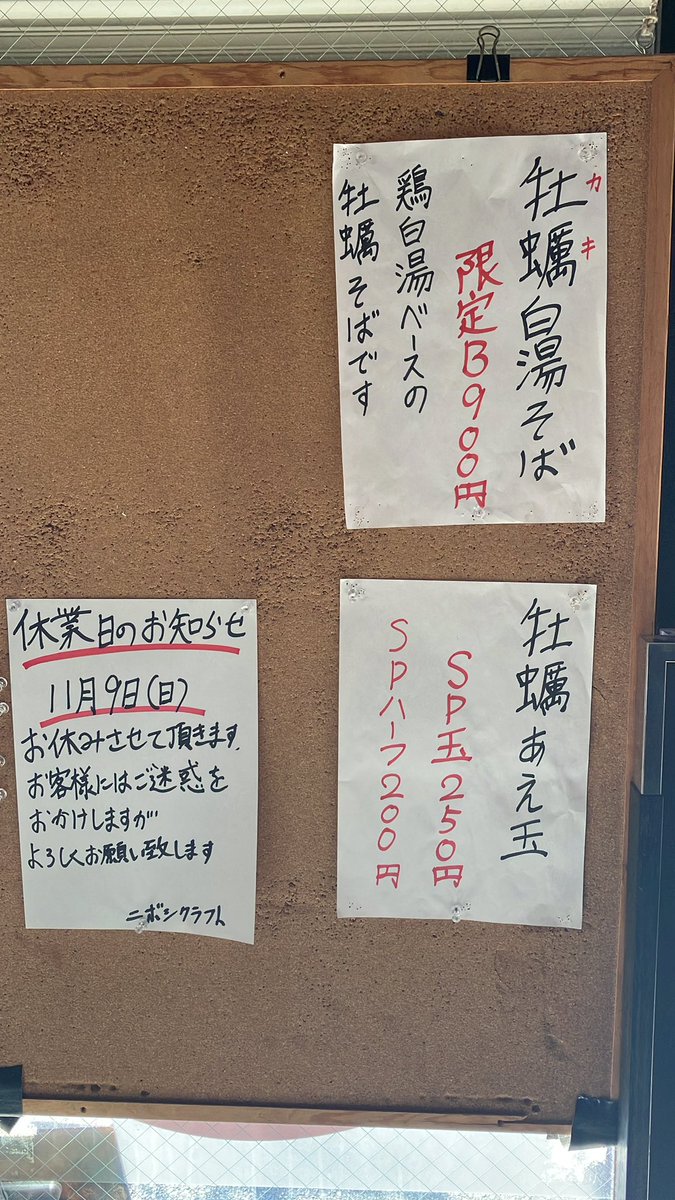 牡蠣白湯そば
カキ
限定B900円
鶏白湯ベースの
牡蠣そばです
牡蠣あえ玉
SP玉250円
SPハーフ200円
休業日のお知らせ
11月9日(日)
お休みさせて頂きます。
お客様にはご迷惑を
おかけしますが
よろしくお願い致します
ニボシクラフト